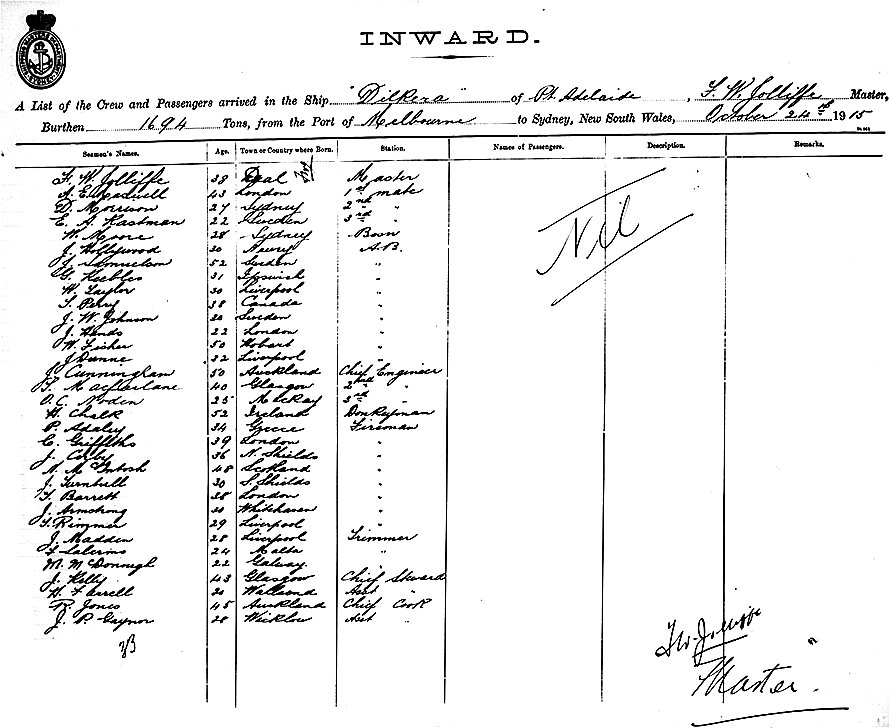 INWARD.
A List of the Crew and Passengers arrived in the Ship "Dilkera" of Pt. Adelaide, F. W. Jolliffe Master,
Burthen 1694 Tons, from the Port of Melbourne to Sydney, New South Wales, October 24th 1915
Seamen's Names. Age. Town or Country where Born. Station. Names of Passengers. Description. Remarks.
F. W. Jolliffe 38 Deal Master
43 London 1st mate
D. Morrison 27 Sydney 2nd "
E. A. Kastman 22 Sweden 3rd "
W. Moore 28 Sydney Bosn
J. Hollywood 30 Newry A.B.
J. Samuelson 52 Sweden "
G. Keebles 31 Ipswich "
W. Taylor 30 Liverpool "
T. Perry 38 Canada "
J. W. Johnson 20 Sweden "
J. Hands 22 London "
W. Fisher 50 Hobart "
J Dunne 32 Liverpool "
J. Cunningham 50 Auckland Chief Engineer
Macfarlane 40 Glasgow 2nd "
O. C. Noden 25 McKay 3rd "
H. Chalk 52 Ireland Donkeyman
P. Adaley 34 Greece Fireman
C. Griffiths 39 London "
J. Corby 36 N. Shields "
N. McIntosh 48 Scotland "
J. Turnbull 30 S. Shields "
T. Barrett 38 London "
J. Armstrong 20 Whitehaven "
T. Rimmer 29 Liverpool "
J. Madden 28 Liverpool Trimmer
24 Malta "
M. McDonnogh 22 Galway
J. Kelly 43 Glasgow Chief Steward
H. Farrell 20 Asst "
R. Jones 45 Auckland Chief Cook
J. P. Gaynor 28 Wicklow Asst "
33
Nil
F W. Jolliffe
Master.